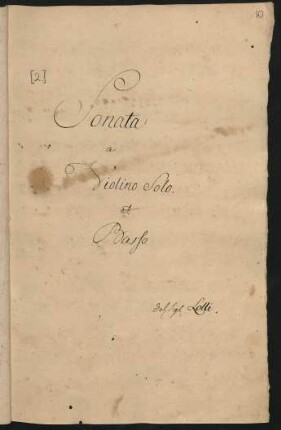 [2]
Sonata
a
Violino Solo.
et
Basso
del Sigl. Lolli.